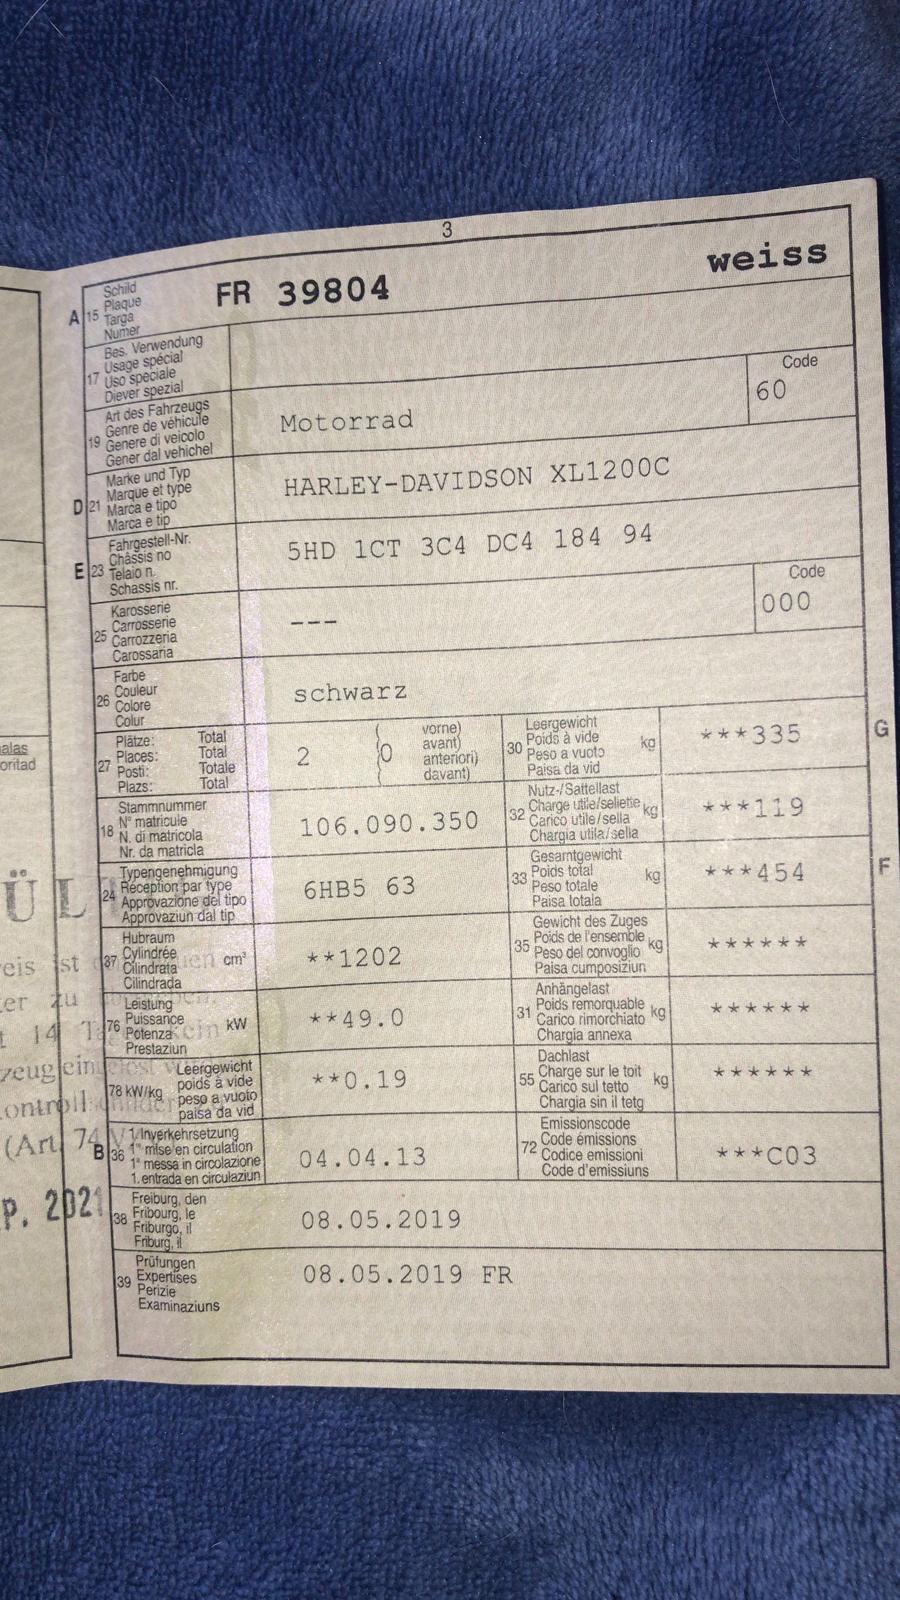 3
A 15 Schild Plaque Targa Numer FR 39804 weiss
17 Bes. Verwendung Usage spécial Uso speciale Diever spezial
19 Art des Fahrzeugs Genre de véhicule Genere di veicolo Gener dal vehichel Motorrad Code 60
D 21 Marke und Typ Marque et type Marca e tipo Marca e tip HARLEY-DAVIDSON XL1200C
E 23 Fahrgestell-Nr. Châssis no Telaio n. Schassis nr. 5HD 1CT 3C4 DC4 184 94
25 Karosserie Carrosserie Carrozzeria Carossaria --- Code 000
26 Farbe Couleur Colore Colur schwarz
27 Plätze: Total Places: Total Posti: Totale Plazs: Total 2 (0 vorne) avant) anteriori) davant)
30 Leergewicht Poids à vide Peso a vuoto Paisa da vid kg ***335 G
18 Stammnummer N° matricule N. di matricola Nr. da matricla 106.090.350
32 Nutz-/Sattellast Charge utile/sellette Carico utile/sella Chargia utila/sella kg ***119
24 Typengenehmigung Réception par type Approvazione del tipo Approvaziun dal tip 6HB5 63
33 Gesamtgewicht Poids total Peso totale Paisa totala kg ***454 F
37 Hubraum Cylindrée Cilindrata Cilindrada cm³ **1202
35 Gewicht des Zuges Poids de l'ensemble Peso del convoglio Paisa cumposiziun kg ******
76 Leistung Puissance Potenza Prestaziun kW **49.0
31 Anhängelast Poids remorquable Carico rimorchiato Chargia annexa kg ******
78 kW/kg Leergewicht poids à vide peso a vuoto paisa da vid **0.19
55 Dachlast Charge sur le toit Carico sul tetto Chargia sin il tetg kg ******
B 36 1. Inverkehrsetzung 1re mise en circulation 1a messa in circolazione 1. entrada en circulaziun 04.04.13
72 Emissionscode Code émissions Codice emissioni Code d'emissiuns ***C03
38 Freiburg, den Fribourg, le Friburgo, il Friburg, il 08.05.2019
39 Prüfungen Expertises Perizie Examinaziuns 08.05.2019 FR
alas
oritad
ÜL
eis ist
zu
14
zeug
ontroll
(Art. 74
P. 2021